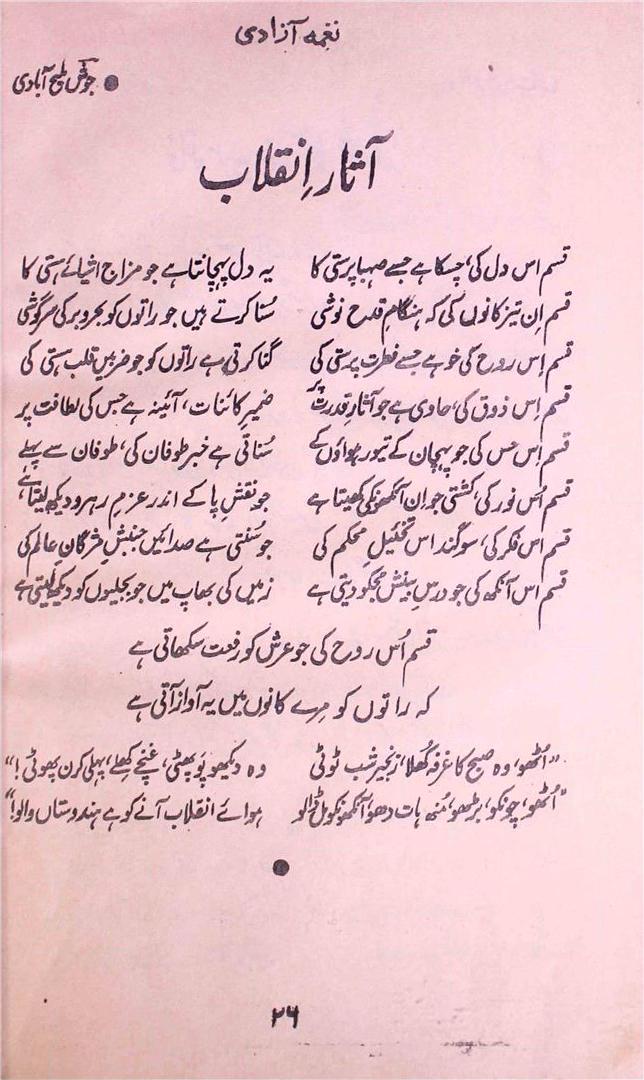 نغمہ آزادی
● جوش ملیح آبادی
آثارِ انقلاب
قسم اس دل کی، چسکا ہے جسے صہبا پرستی کا یہ دل پہچانتا ہے جو مزاج اشیائے ہستی کا
قسم اِن تیز کانوں کی کہ ہنگامِ قدح نوشی سُنا کرتے ہیں جو راتوں کو بحر و بر کی سرگوشی
قسم اِس روح کی خو ہے جسے فطرت پرستی کی گنا کرتی ہے راتوں کو جو ضربیں قلبِ ہستی کی
قسم اِس ذوق کی، حاوی ہے جو آثارِ قدرت پر ضمیرِ کائنات، آئینہ ہے جس کی لطافت پر
قسم اِس حس کی جو پہچان کے تیور ہواؤں کے سُناتی ہے خبر طوفان کی، طوفان سے پہلے
قسم اُس نور کی، کشتی جو اِن آنکھونکی کھیتا ہے جو نقشِ پا کے اندر عزمِ رہرو دیکھ لیتا ہے
قسم اس فکر کی، سوگند اس تخئیلِ محکم کی جو سُنتی ہے صدائیں جنبشِ مژگانِ عالم کی
قسم اس آنکھ کی جو درسِ بینش مجکو دیتی ہے زمیں کی بھاپ میں جو بجلیوں کو دیکھ لیتی ہے
قسم اُس روح کی جو عرش کو رفعت سکھاتی ہے
کہ راتوں کو مِرے کانوں میں یہ آواز آتی ہے
"اُٹھو، وہ صبح کا غرفہ کُھلا، زنجیرِ شب ٹوٹی وہ دیکھو پَو پھٹی، غنچے کھلے، پہلی کرن پھوٹی!"
"اُٹھو، چونکو، بڑھو، مُنہ ہات دھو، آنکھونکو مل ڈالو ہوائے انقلاب آنے کو ہے ہندوستاں والو!"
●
۲۶